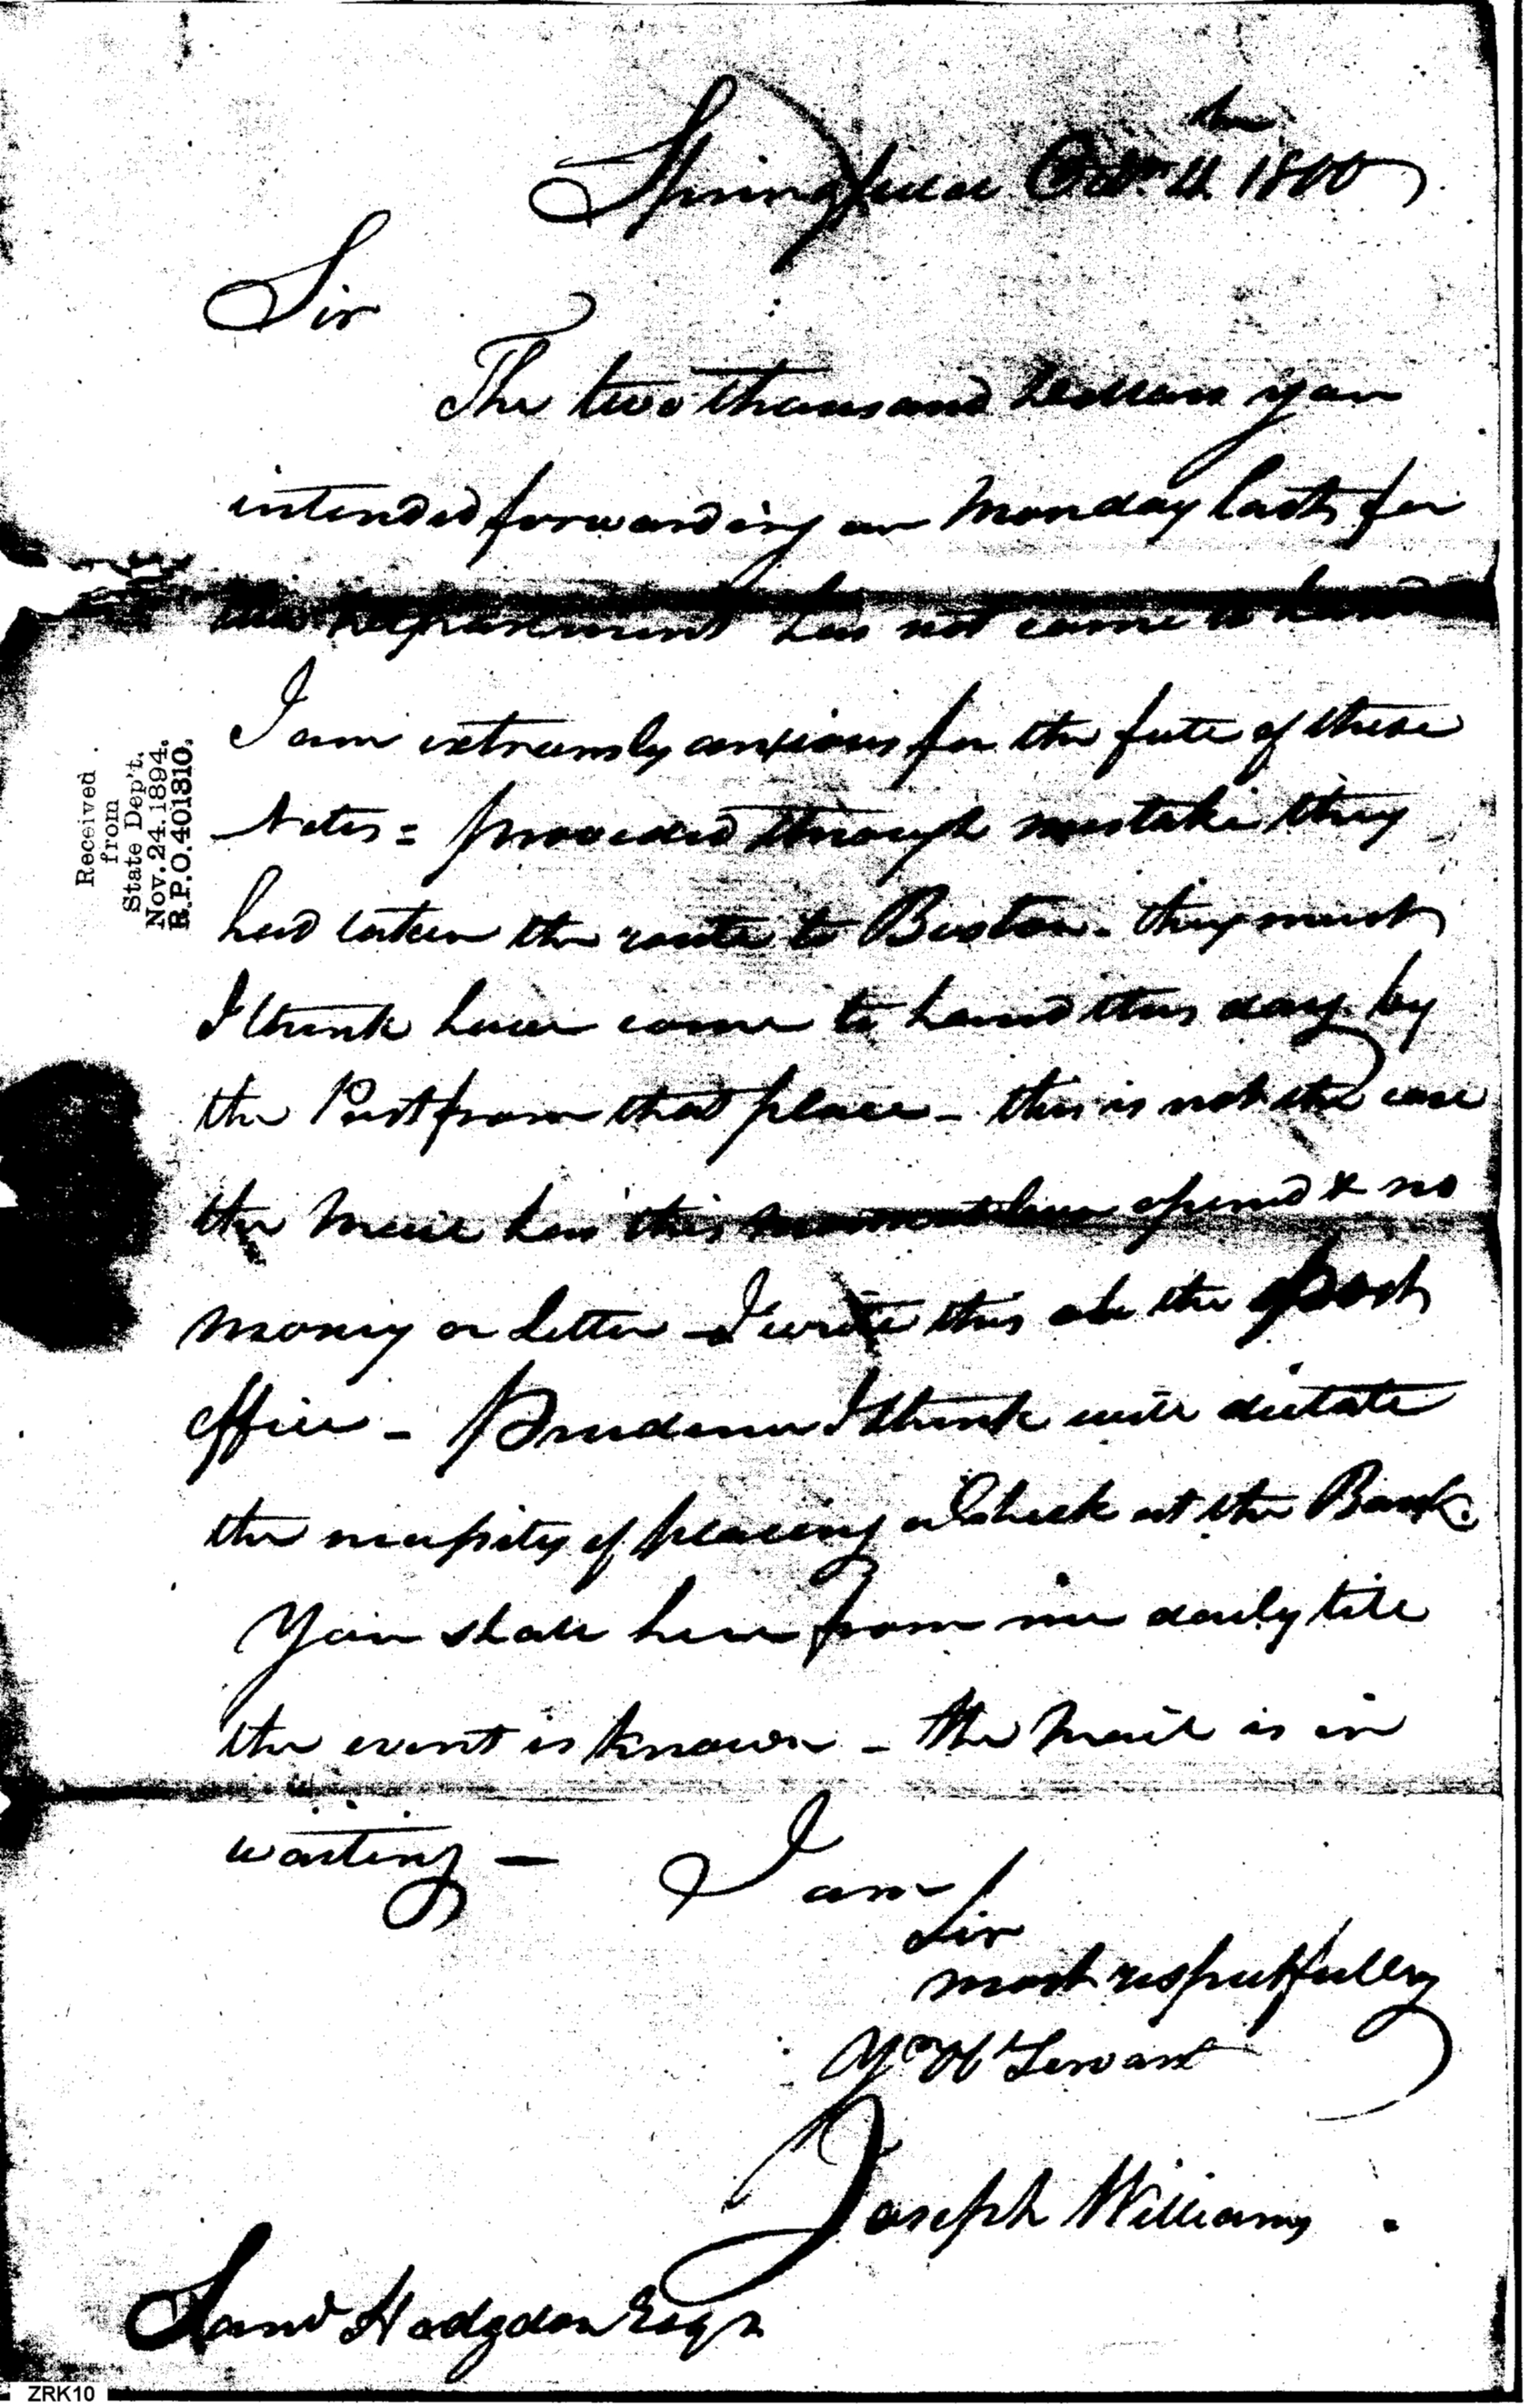 Springfield Octr. 11th 1800
Sir
The two thousand Dollars you
intended forwarding on Monday last for
this Department has not come to hand
I am extremely anxious for the fate of these
Notes = provided through mistake they
had taken the route to Boston - they must
I think have come to hand this day by
the Post from that place - this is not the case
the Mail has this moment been opened & no
money or Letter - I write this at the post
office - Prudence I think will dictate
the necessity of placing a Check at the Bank.
You shall hear from me daily till
the event is known - the Mail is in
waiting - I am
Sir
most respectfully
Yr. Obt Servant
Joseph Williams.
Saml Hodgdon Esqr
Received
from
State Dep't.
Nov. 24. 1894.
R.P.O. 401310.
ZRK10